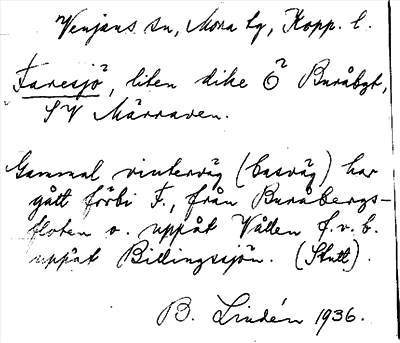 Venjans sn, Mora tg, Kopp. l.
Faresjö, liten dike Ö Buråbgt,
SV Märraven.
Gammal vinterväg (basväg) har
gått förbi F., från Buråbergs-
floten o. uppåt Vållen f.v.b.
uppåt Billingssjön. (Slutt).
B. Lindén 1936.